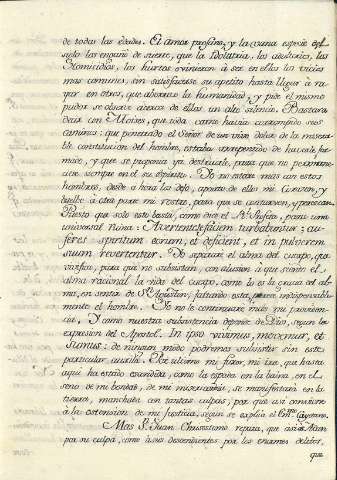 de todas las edades. El amor profano, y la vana especie del
siglo los engañó de suerte, que la Idolatria, los adulterios, los
Homicidios, los hurtos vinieron à ser en ellos los vicios
mas comunes, sin satisfacerse su apetito hasta llegar à
en otros, que aborrece la humanidad, y por el mismo
pudor se observe acerca de ellos un alto silencio. Bastara
decir con Moises, que toda carne havia corrompido sus
caminos: que penetrado el Señor de un vivo dolor de la misera-
ble constitucion del hombre, estaba arrepentido de haverle for-
mado, y que se proponia ya destruirle, para que no permane-
ciese siempre en el su espiritu. Yo no estaré mas con estos
hombres, desde ahora los dejo, aparto de ellos mi corazon, y
buelbo à otra parte mi rostro, para que se conturben, y perezcan.
Puesto que solo esto basta, como dice el Rl. Profeta, para una
universal ruina: Avertente faciem turbabuntur; au-
feres spiritum eorum, et deficient, et in pulverem
suum revertentur. Yo separaré el alma del cuerpo,
para que no subsistan, con alusion à que siendo el
alma racional la vida del cuerpo, como lo es la gracia del al-
ma, en sentir de Sn. Agustin; faltando esta, perece indispensable-
mente el hombre. Yo no le continuaré mas mi providen-
cia, Y como nuestra subsistencia depende de Dios, segun la
expresion del Apostol. In ipso vivimus, movemur, et
sumus: de ningun modo podremos subsistir sin este
particular auxilio. Por ultimo mi furor, mi ira, que hasta
aqui ha estado escondida, como la espada en la baina, en el
seno de mi bondad, de mi misericordia, se manifestará en la
tierra, manchada con tantas culpas, por que asi conviene
à la ostension de mi Justicia, segun se explica el Cayetano.
Mas Sn. Juan Chrisostomo repara, que asi à Adan
por su culpa, como à sus descendientes por los enormes delitos,
que